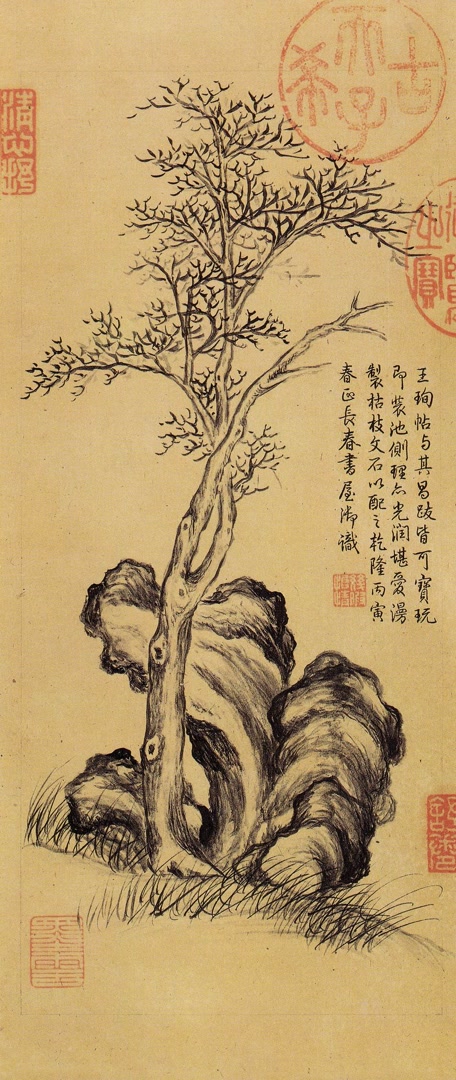 古希天子
王珣帖与其昌跋皆可寶玩
即裝池側理亦光潤堪愛漫
製枯枝文石以配之乾隆丙寅
春正長春書屋御識